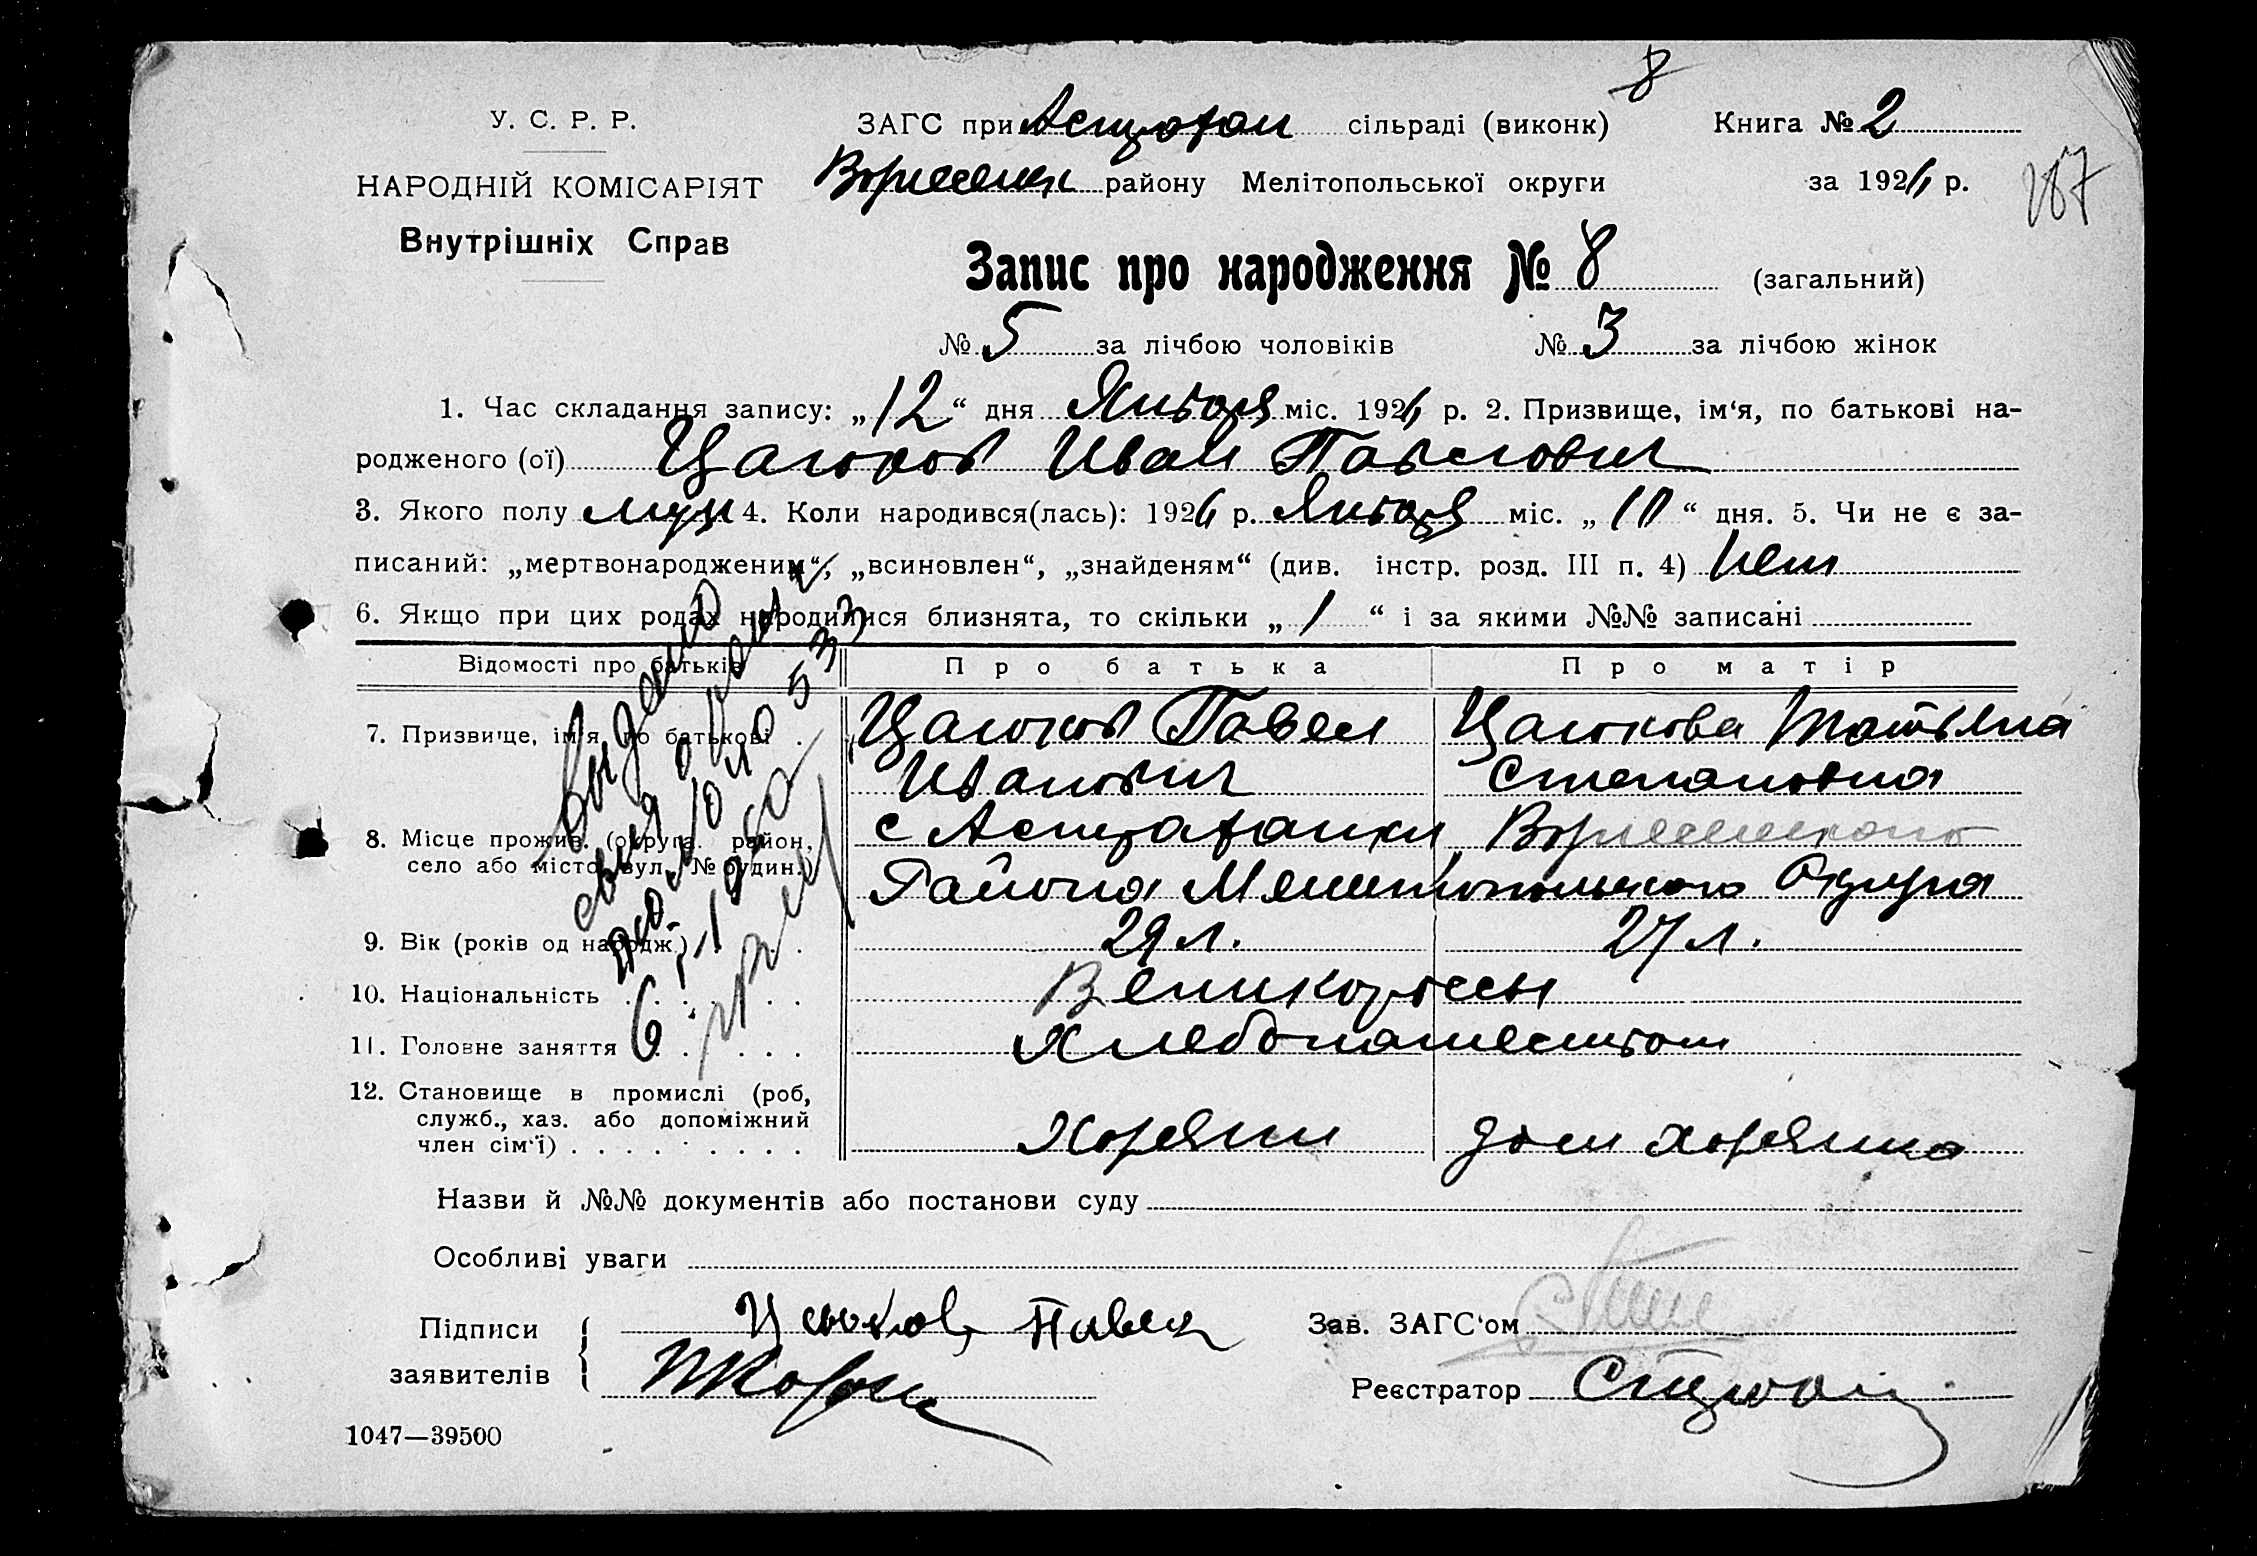 8
У. С. Р. Р.
ЗАГС при Астрахан сільраді (виконк) Книга № 2
НАРОДНІЙ КОМІСАРІЯТ
району Мелітопольської округи за 1926 р.
187
Внутрішніх Справ
Запис про народження № 8 (загальний)
№ 5 за лічбою чоловіків № 3 за лічбою жінок
1. Час складання запису: „12“ дня Января міс. 1926 р. 2. Призвище, ім‘я, по батькові на-
родженого (ої) Иван Павлович
3. Якого полу муж 4. Коли народився(лась): 1926 р. Января міс. „10“ дня. 5. Чи не є за-
писаний: „мертвонародженим“, „всиновлен“, „знайденям“ (див. інстр. розд. III п. 4) Нет
6. Якщо при цих родах народилися близнята, то скільки „ / “ і за якими №№ записані
Відомості про батьків Про батька Про матір
7. Призвище, ім‘я, по батькові . Павел Татьяна
Иванович Степановна
8. Місце прожив. (округа. район, с Астраханки
село або місто, вул. № будин.) Района Мелитопольского Округа
9. Вік (років од народж.) . . . 29 л. 27 л.
10. Національність . . . . . . Великороссы
11. Головне заняття . . . . . . Хлебопашеством
12. Становище в промислі (роб,
служб., хаз. або допоміжний
член сім‘ї) . . . . . . . . . Хозяин дом хозяйка
Выдано
Назви й №№ документів або постанови суду
Особливі уваги
Підписи Павел Зав. ЗАГС‘ом
заявителів Реєстратор
1047—39500